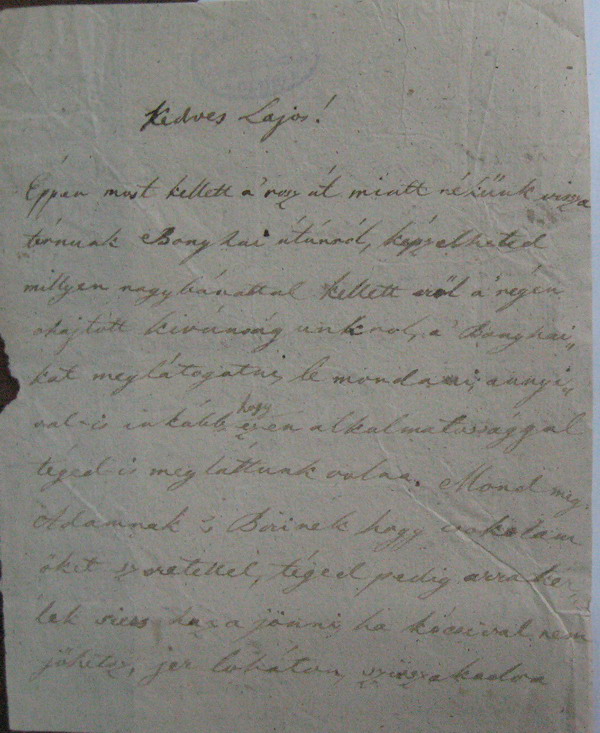 Kedves Lajos!
Éppen most kellett a' rosz út miatt nékünk visza
térnunk Bonyhai útúnról, képzelheted
millyen nagy bánattal kellett erről a' régen
ohajtott kivánság unkrol, a' Bonyhai„
kat meglátogatni, le mondani, annyi„
val-is inkább, hogy ezen alkalmatossággal
téged is meg láttunk volna. Mond meg
Ádámnak 's Borinek hogy csokolam
őket szeretettel, téged pedig arra kér„
lek siess haza jönni, ha kócsival nem
jöhetsz, jer loháton,